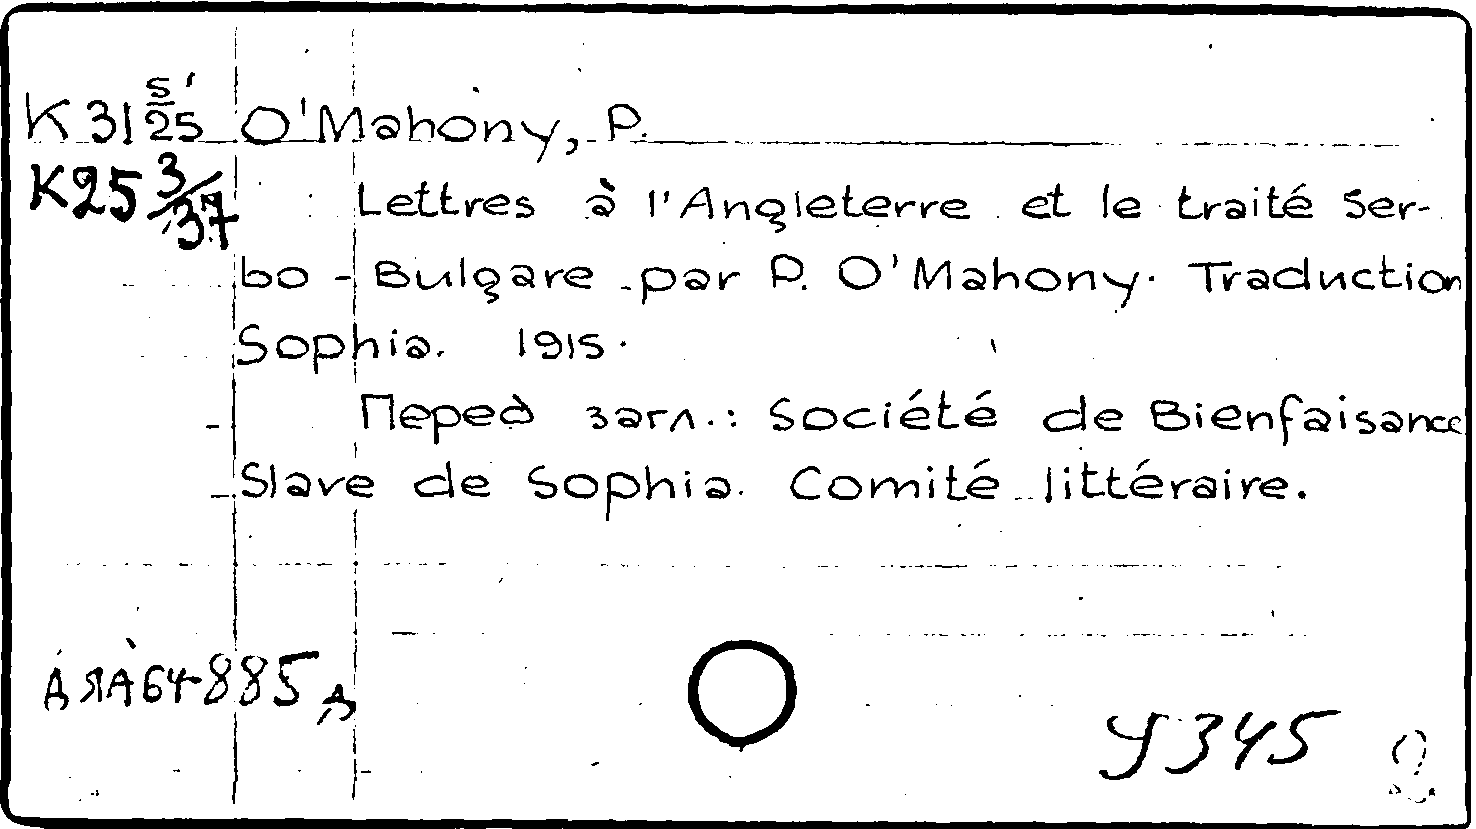 K 31 5/25 O'Mahony, P.
K25 3/37 Lettres à l'Angleterre et le traité Ser-
bo - Bulgare par P. O'Mahony. Traduction
Sophia. 1915.
Перед загл.: Société de Bienfaisance
Slave de Sophia. Comité littéraire.
885
У345